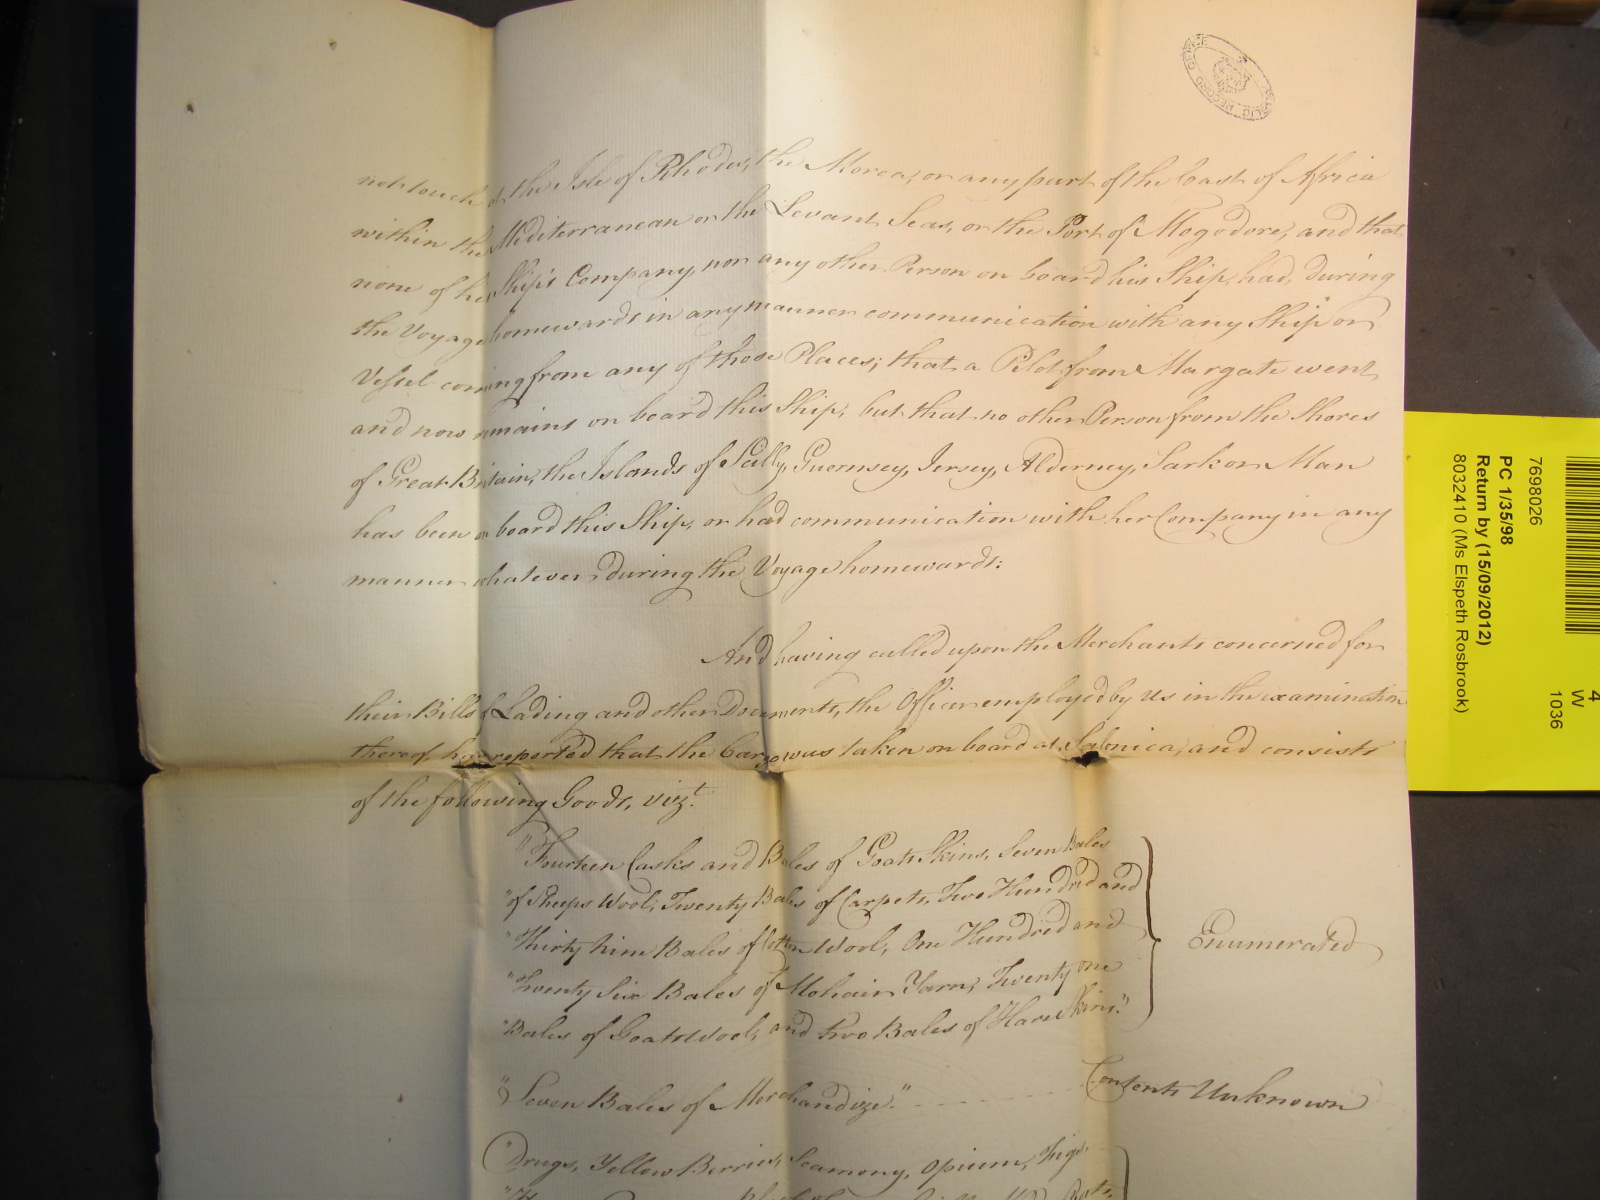 PUBLIC RECORD OFFICE
not touch at the Isle of Rhodes, the Morea, or any part of the Coast of Africa
within the Mediterranean or the Levant Seas, or the Port of Mogodore, and that
none of her Ship's Company, nor any other Person on board his Ship, had, during
the Voyage homewards in any manner communication with any Ship or
Vessel coming from any of those Places; that a Pilot from Margate went
and now remains on board this Ship, but that no other Person from the Shores
of Great Britain, the Islands of Scilly, Guernsey, Jersey, Alderney, Sark or Man
has been on board this Ship, or had communication with her Company in any
manner whatever during the Voyage homewards:
And having called upon the Merchants concerned for
their Bills of Lading and other Documents, the Officer employed by us in the examination
thereof, has reported that the Cargo was taken on board at Salonica, and consists
of the following Goods, vizt.
"Fourteen Casks and Bales of Goats Skins, Seven Bales
"of Sheeps Wool, Twenty Bales of Carpets, Two Hundred and
"Thirty nine Bales of Cotton Wool, One Hundred and
"Twenty Six Bales of Mohair Yarn, Twenty one
"Bales of Goats Wool, and two Bales of Hare Skins."
Enumerated
"Seven Bales of Merchandize." Contents Unknown
"Drugs, Yellow Berries, Scamony, Opium, Figs,
7698026
PC 1/35/98
Return by (15/09/2012)
8032410 (Ms Elspeth Rosbrook)
4
W
1036